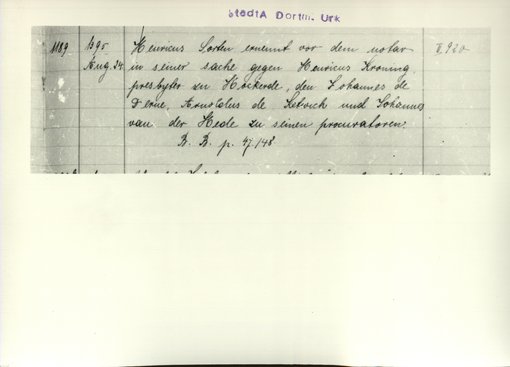 StadtA Dortm. Urk
1189 1395 Henricus Sorten ernennt vor dem notar II. 920
Aug. 24. in seiner sache gegen Henricus Kroning,
presbyter zu Höckerde, den Johannes de
Derne, Arnoldus de Ketwich und Johannes
van der Hede zu seinen procuratoren.
B. B. p. 47/148